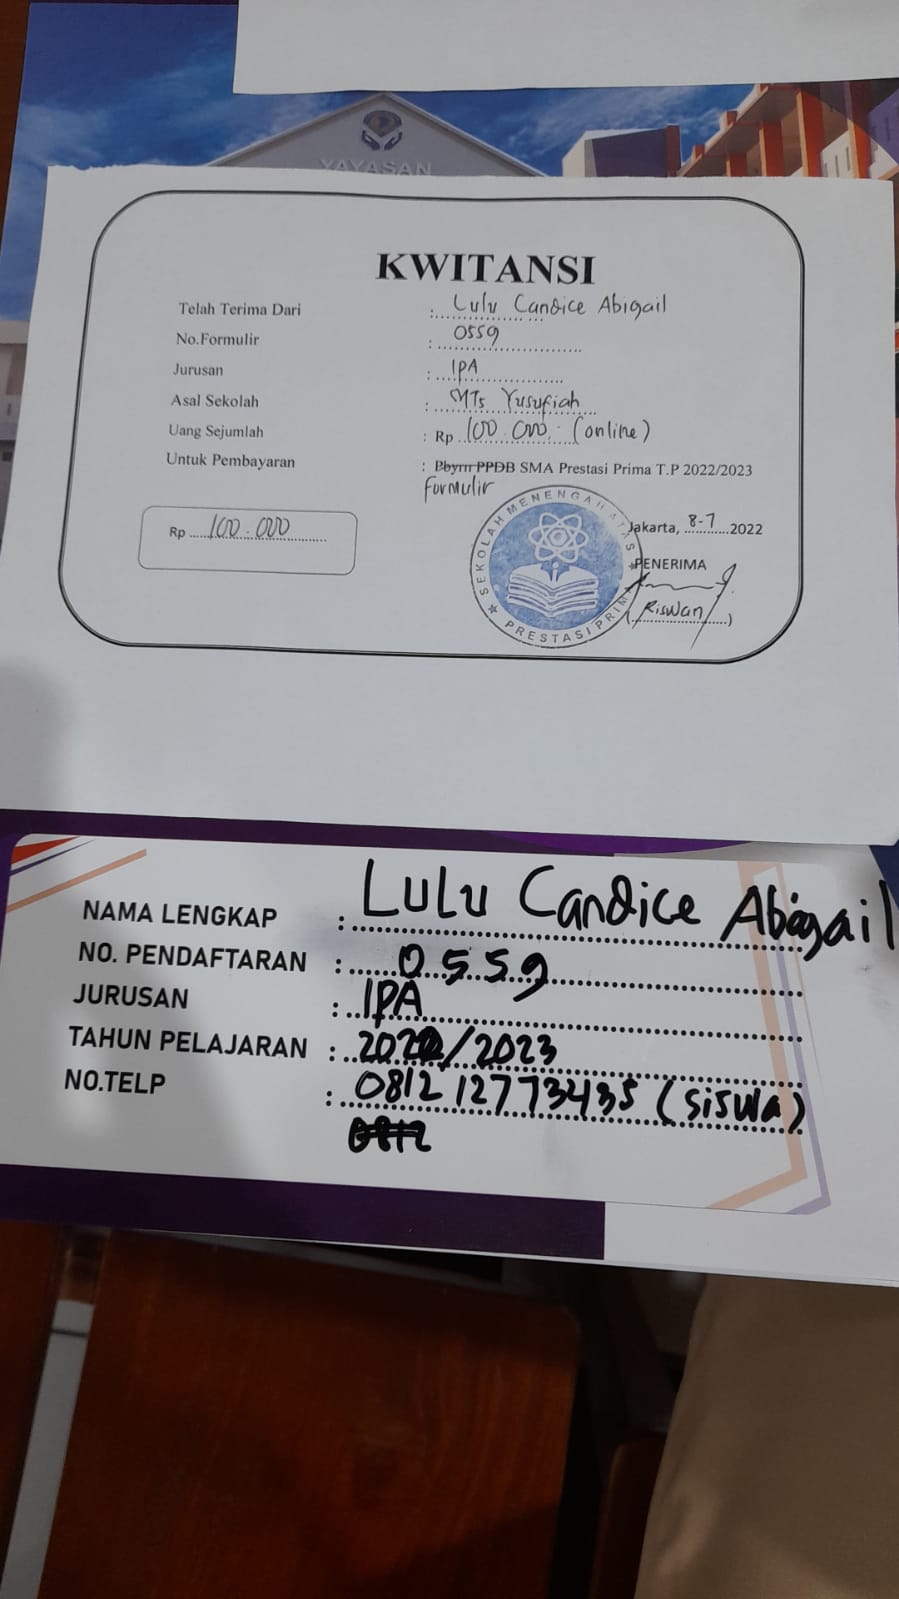 YAYASAN
KWITANSI
Telah Terima Dari : Lulu Candice Abigail
No.Formulir : 0559
Jurusan : IPA
Asal Sekolah : MTs Yusufiah
Uang Sejumlah : Rp 100.000,- (online)
Untuk Pembayaran : Pbyrn PPDB SMA Prestasi Prima T.P 2022/2023
Formulir
Rp 100.000
SEKOLAH MENENGAH ATAS
PRESTASI PRIMA
Jakarta, 8-7 2022
PENERIMA
(Riswan)
NAMA LENGKAP : Lulu Candice Abigail
NO. PENDAFTARAN : 0559
JURUSAN : IPA
TAHUN PELAJARAN : 2022/2023
NO.TELP : 081212773435 (siswa)
0812